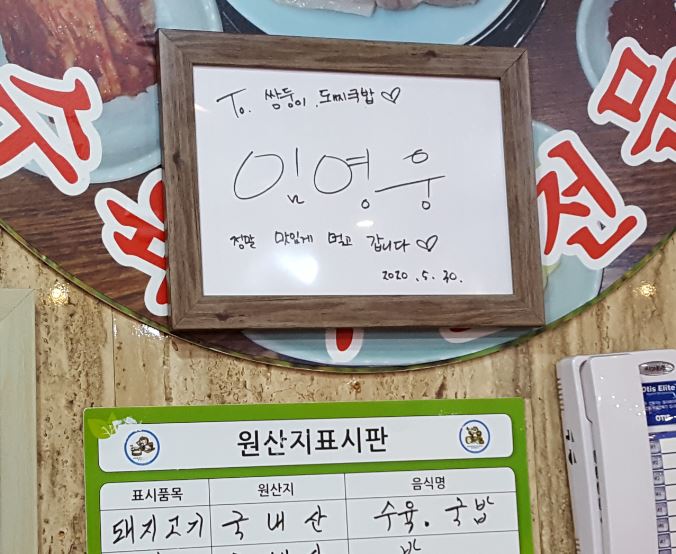 To. 쌍둥이 도찌국밥♡
임영웅
정말 맛있게 먹고 갑니다♡
2020.5.30.
수
전문
원산지표시판
표시품목 원산지 음식명
돼지고기 국내산 수육. 국밥
Otis Elite
OTIS